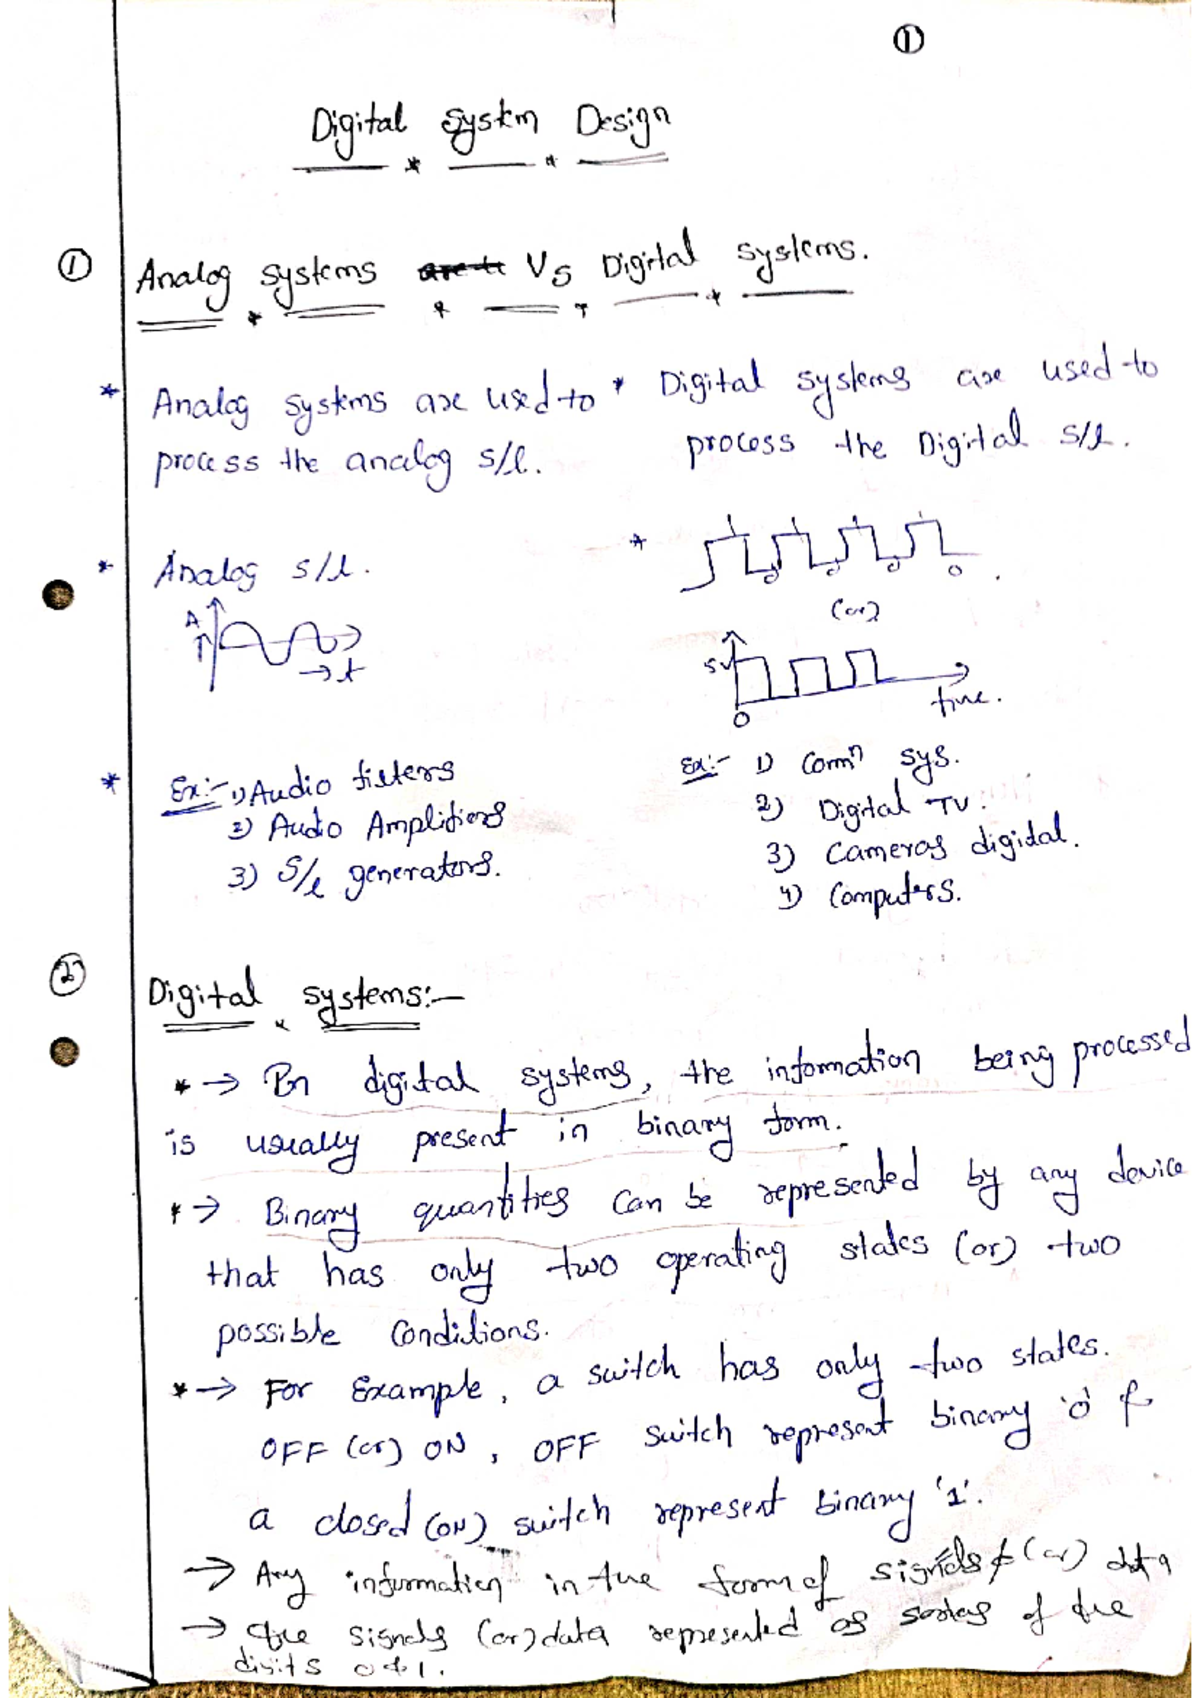 ①
Digital System Design
① Analog systems Vs Digital systems.
* Analog systems are used to
process the analog s/l.
* Digital systems are used to
process the Digital s/l.
* Analog s/l.
A
→ t
*
1 1 1 1
0 0 0 0
(or)
5V
0
time.
* Ex:- 1) Audio filters
2) Audio Amplifiers
3) S/l generators.
Ex:- 1) Commn sys.
2) Digital TV.
3) Cameras digital.
4) Computers.
② Digital systems:-
* → In digital systems, the information being processed
is usually present in binary form.
* → Binary quantities can be represented by any device
that has only two operating states (or) two
possible conditions.
* → For Example, a switch has only two states.
OFF (or) ON, OFF switch represent binary '0' &
a closed (ON) switch represent binary '1'.
→ Any information in the form of signals (or) data
→ The signals (or) data represented as series of the
digits 0 & 1.